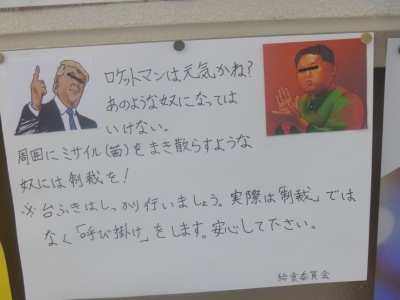 ロケットマンは元気かね?
あのような奴になっては
いけない。
周囲にミサイル(菌)をまき散らすような
奴には制裁を!
※台ふきはしっかり行いましょう。実際は「制裁」では
なく「呼び掛け」をします。安心して下さい。
給食委員会